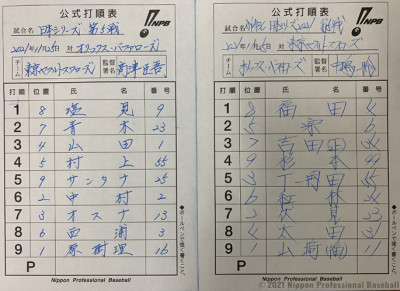 公式打順表
NPB
試合名 日本シリーズ 第5戦
2021年11月25日 対 オリックス・バファローズ
チーム 東京ヤクルトスワローズ 監督署名 高津臣吾
打順 位置 氏名 番号
1 8 塩見 9
2 7 青木 23
3 4 山田 1
4 5 村上 55
5 9 サンタナ 25
6 2 中村 2
7 3 オスナ 13
8 6 西浦 3
9 1 原樹理 16
P
●ボールペンで強く書くこと。
Nippon Professional Baseball
公式打順表
NPB
試合名 日本シリーズ 第5戦
2021年11月25日 対 東京ヤクルトスワローズ
チーム オリックス・バファローズ 監督署名
打順 位置 氏名 番号
1 8 福田
2 5 宗 6
3 7 吉田(正)
4 9 杉本 99
5 3 T-岡田 55
6 6 紅林
7 2 伏見 23
8 4 太田 31
9 1 山﨑(福) 11
P
●ボールペンで強く書くこと。
Nippon Professional Baseball
© 2021 Nippon Professional Baseball